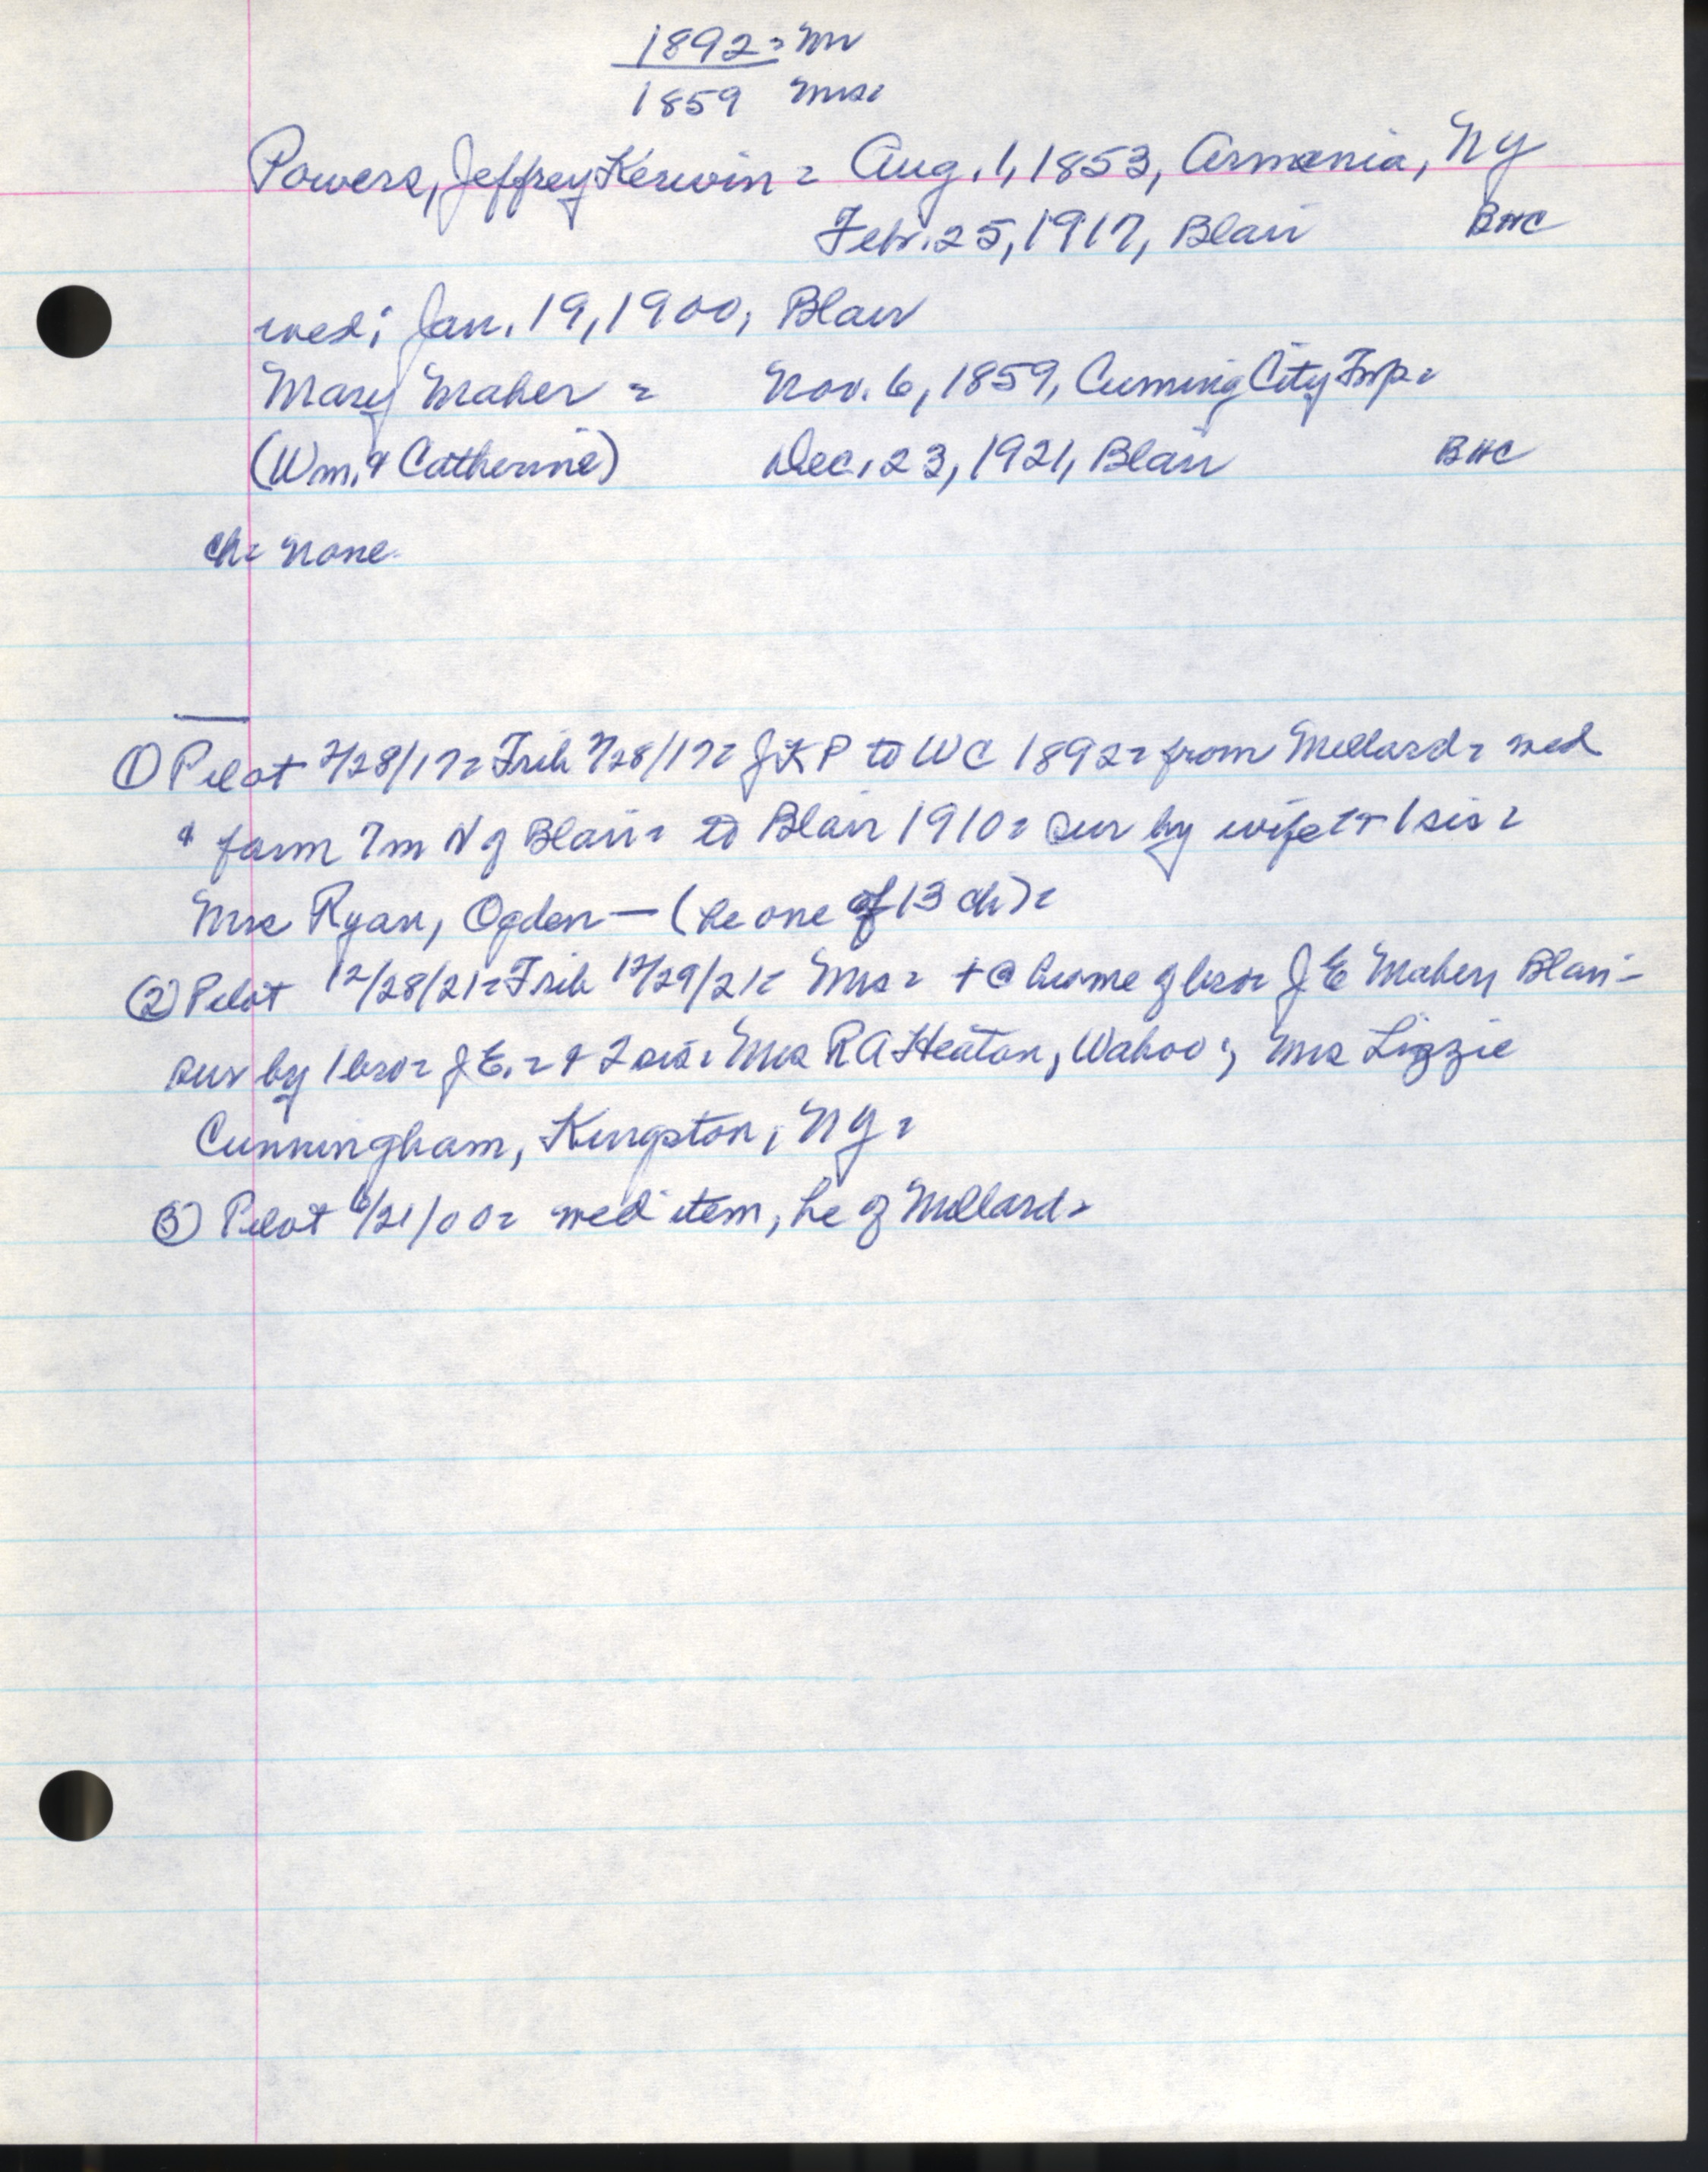 1892 = Mr
1859 Mrs =
Powers, Jeffrey Kerwin = Aug. 1, 1853, Armenia, NY
Feb. 25, 1917, Blair BHC
wed; Jan. 19, 1900, Blair
Mary Maher = Nov. 6, 1859, Cuming City Twp =
(Wm. & Catherine) Dec. 23, 1921, Blair BHC
ch = none
① Pilot 2/28/17 = Trib 2/28/17 = JKP to WC 1892 = from Millard = wed
& farm 7m N of Blair = to Blair 1910 = sur by wife + 1 sis =
Mrs Ryan, Ogden — (he one of 13 ch) =
② Pilot 12/28/21 = Trib 12/29/21 = Mrs = + @ home of bro = J E Maher, Blair -
sur by 1 bro = J E. = & 2 sis = Mrs R A Heaton, Wahoo; Mrs Lizzie
Cunningham, Kingston, NY =
③ Pilot 6/21/00 = wed item, he of Millard =